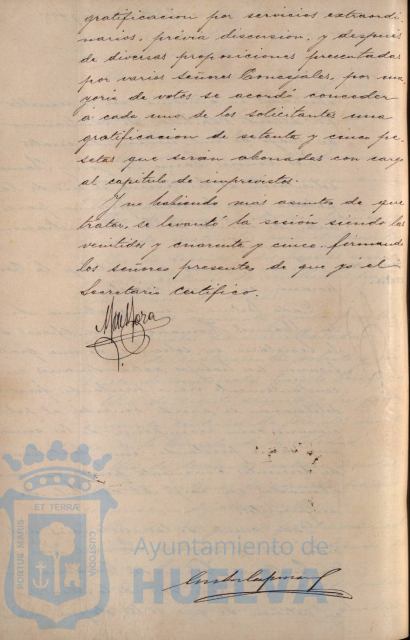 gratificacion por servicios extraordi-
narios, prévia discursion, y despues
de diversas proposiciones presentadas
por varios Señores Concejales, por ma-
yoria de votos se acordó conceder
á cada uno de los solicitantes una
gratificacion de setenta y cinco pe-
setas que serán abonadas con cargo
al capítulo de imprevistos.
Y no habiendo mas asuntos de que
tratar, se levantó la sesión siendo las
veintidos y cuarenta y cinco, firmando
los señores presentes de que yó el
Secretario certifico.
ET TERRÆ
PORTUS MARIS
CUSTODIA
Ayuntamiento de
HUELVA